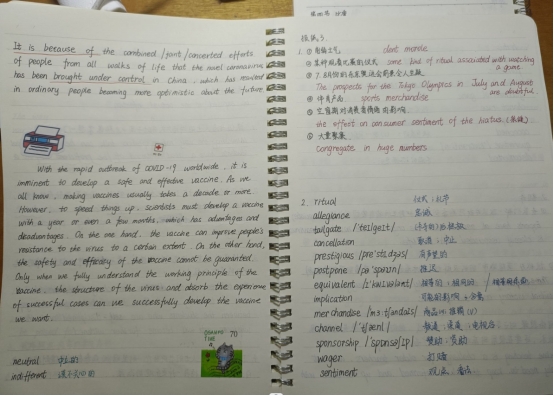 It is because of the combined / joint / converted efforts
of people from all walks of life that the novel coronavirus
has been brought under control in China, which has resulted
in ordinary people becoming more optimistic about the future
With the rapid outbreak of COVID-19 worldwide, it is
imminent to develop a safe and effective vaccine. As we
all know, making vaccines usually takes a decade or more.
However, to speed things up, scientists must develop a vaccine
with a year or even a few months, which has advantages and
disadvantages. On the one hand, the vaccine can improve people's
resistance to the virus to a certain extent. On the other hand,
the safety and efficacy of the vaccine cannot be guaranteed.
Only when we fully understand the working principle of the
vaccine, the structure of the virus and absorb the experience
of successful cases can we successfully develop the vaccine
we want.
70
neutral 中立的
indifferent 漠不关心的
1. ① dent morale
② some kind of ritual associated with watching
a game
③
The prospects for the Tokyo Olympics in July and August
are doubtful.
④ sports merchandise
⑤
the effect on consumer sentiment of the hiatus
⑥ 大量聚集
congregate in huge numbers
2. ritual 仪式
allegiance 忠诚
tailgate /'teɪlgeɪt/
cancellation 取消,中止
prestigious /pre'stɪdʒəs/ 有声望的
postpone /pə'spəʊn/ 推迟
equivalent /ɪ'kwɪvələnt/
implication 可能的影响
merchandise /mɜːtʃəndaɪs/ 商品
channel /'tʃænl/
sponsorship /'spɒnsəʃɪp/ 赞助
wager 打赌
sentiment